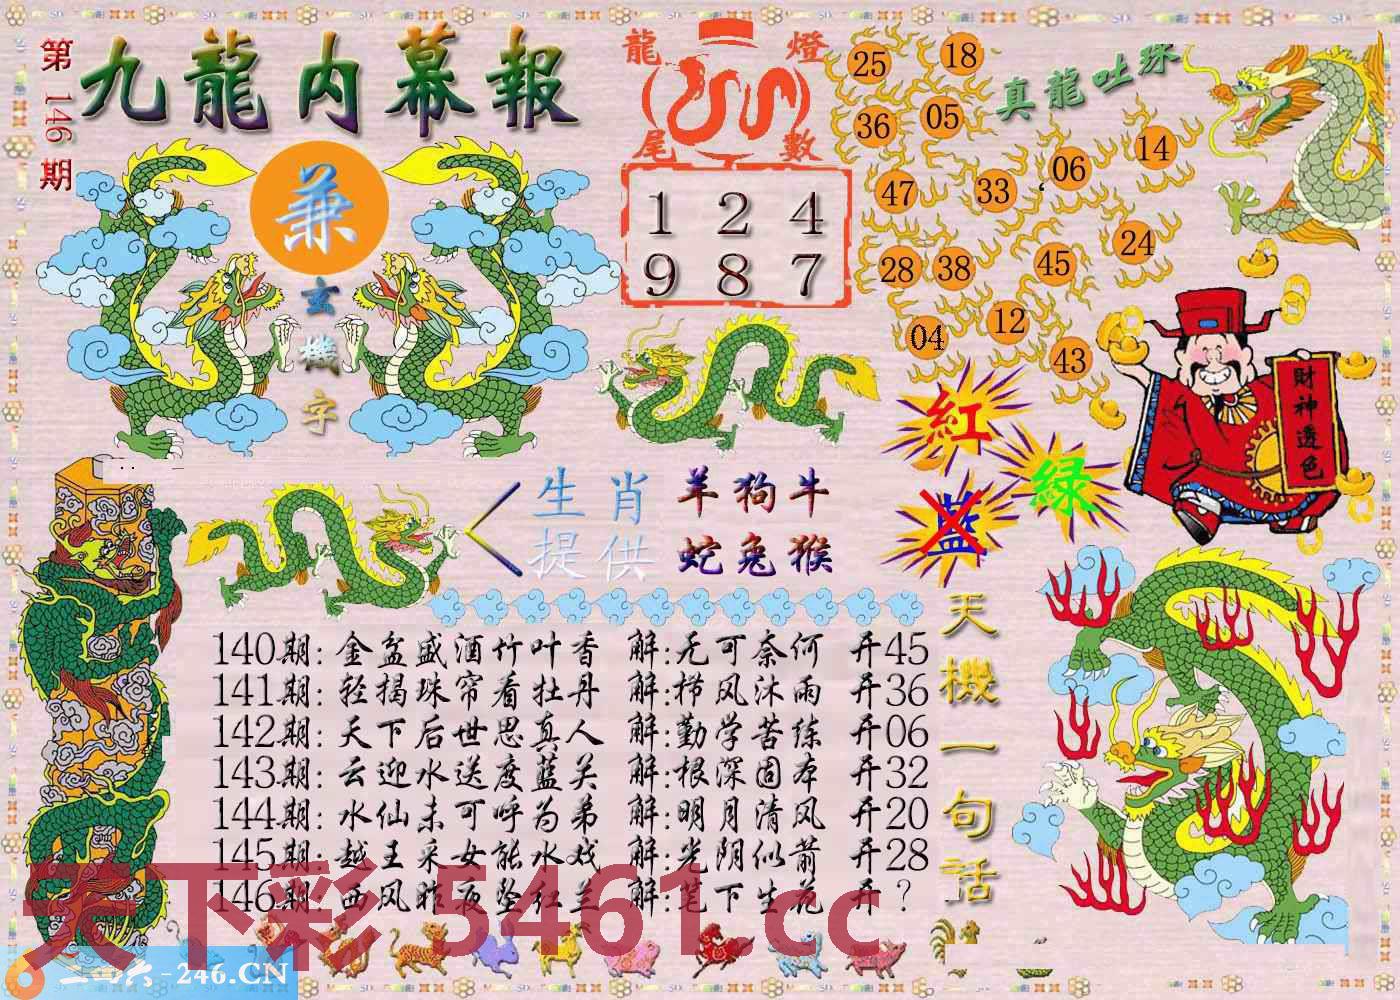 第146期
九龍内幕報
兼
玄機字
龍燈尾數
1 2 4
9 8 7
真龍吐珠
25 18
36 05
47 33 06 14
28 38 45 24
04 12 43
財神透色
紅
绿
藍
生肖提供
羊狗牛
蛇兔猴
天機一句話
140期: 金盆盛酒竹叶香 解:无可奈何 开45
141期: 轻揭珠帘看牡丹 解:栉风沐雨 开36
142期: 天下后世思真人 解:勤学苦练 开06
143期: 云迎水送度蓝关 解:根深固本 开32
144期: 水仙未可呼为弟 解:明月清风 开20
145期: 越王采女能水戏 解:光阴似箭 开28
146期: 西风昨夜坠红兰 解:笔下生花 开?
天下彩 5461.cc
二四六-246.CN